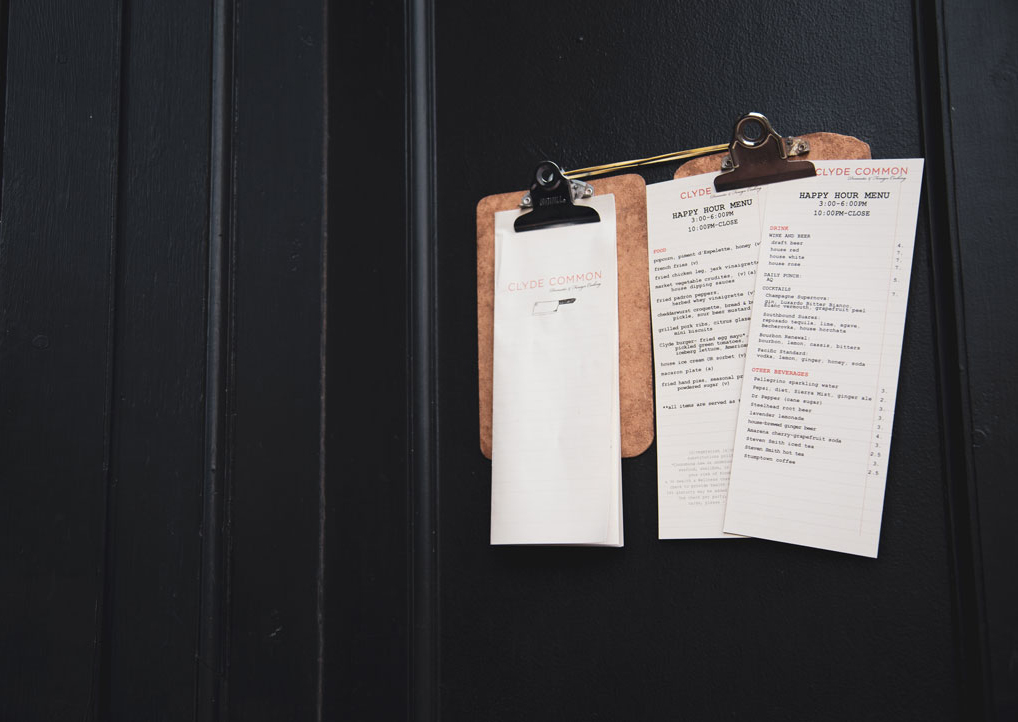 CLYDE COMMON
Domestic & Foreign Cooking
CLYDE
HAPPY HOUR MENU
3:00-6:00PM
10:00PM-CLOSE
FOOD
popcorn, piment d'Espelette, honey (v
french fries (v)
fried chicken leg, jerk vinaigrette
market vegetable crudités, (v) (a)
house dipping sauces
fried padron peppers,
herbed whey vinaigrette (v
cheddarwurst croquette, bread & b
pickle, sour beet mustard
grilled pork ribs, citrus glaze
mini biscuits
Clyde burger- fried egg mayo*,
pickled green tomatoes,
iceberg lettuce, America
house ice cream OR sorbet (v)
macaron plate (a)
fried hand pies, seasonal
powdered sugar (v)
**all items are served as
CLYDE COMMON
Domestic & Foreign Cooking
HAPPY HOUR MENU
3:00-6:00PM
10:00PM-CLOSE
DRINK
WINE AND BEER
draft beer 4.
house red 7.
house white 7.
house rose 7.
DAILY PUNCH: 5.
AQ
COCKTAILS 7.
Champagne Supernova:
gin, Luxardo Bitter Bianco,
blanc vermouth, grapefruit peel
Southbound Suarez:
reposado tequila, lime, agave,
Becherovka, house horchata
Bourbon Renewal:
bourbon, lemon, cassis, bitters
Pacific Standard:
vodka, lemon, ginger, honey, soda
OTHER BEVERAGES
Pellegrino sparkling water 3.
Pepsi, diet, Sierra Mist, ginger ale 2.
Dr Pepper (cane sugar) 3.
Steelhead root beer 3.
lavender lemonade 3.
house-brewed ginger beer 4.
Amarena cherry-grapefruit soda 3.
Steven Smith iced tea 2.5
Steven Smith hot tea 3.
Stumptown coffee 2.5